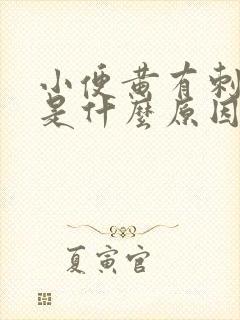 小便黄有刺
是什麼原因
夏寅官